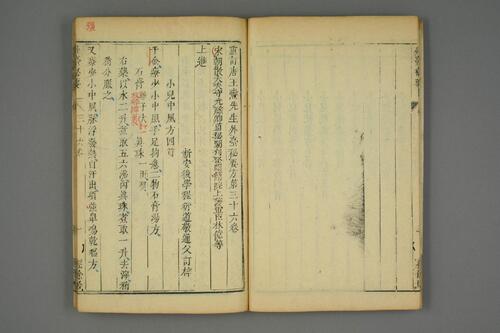 重訂唐王燾先生外臺秘要方第三十六卷
宋朝散大夫守光祿卿直秘閣判登聞檢院上護軍臣林億等
上進
新安後學程衍道敬通父訂梓
小兒中風方四首
千金療少小中風手足拘急二物石膏湯方
石膏 真珠一兩
右二味以水二升煮石膏五六沸內真珠煮取一升去滓稍
稍分服之
又療少小中風脈浮發熱自汗出項強鼻鳴乾嘔方
三十六卷